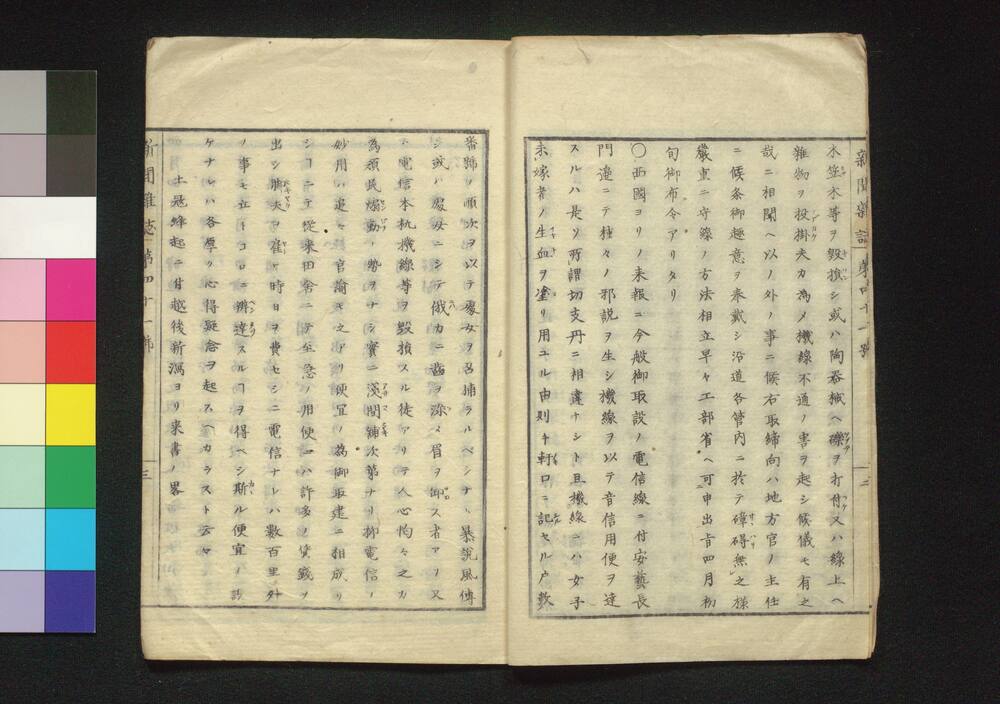 新聞雜誌 第四十一號 二
木並木等ヲ毀損シ或ハ陶器械ヘ礫ヲ打付又ハ線上ヘ
雜物ヲ投掛夫カ為メ機線不通ノ害ヲ起シ候儀モ有之
哉ニ相聞ヘ以ノ外ノ事ニ候右取締向ハ地方官ノ主任
ニ候条御趣意ヲ奉戴シ沿道各管内ニ於テ障碍無之樣
嚴重ニ守線ノ方法相立早々工部省ヘ可申出旨四月初
旬御布令アリタリ
〇西國ヨリノ来報ニ今般御取設ノ電信線ニ付安藝長
門邊ニテ種々ノ邪説ヲ生シ機線ヲ以テ音信用便ヲ達
スルハ是ソ所謂切支丹ニ相違ナシト且機線ニハ女子
未嫁者ノ生血ヲ塗リ用ユル由則チ軒口ニ記セル戸數
番號ノ順次ヲ以テ處女ヲ召捕ラルベシナト暴説風傳
シ或ハ處女ニシテ俄カニ齒ヲ染メ眉ヲ卸ス者アリ又
ハ電信本杭機線等ヲ毀損スル徒アリテ人心恟々之カ
為頑民煽動ノ勢ヲナシ實ニ淺間鋪次第ナリ抑電信ノ
妙用ハ追々官諭モ之アリ便宜ノ為御取建ニ相成リ
シコニテ從来田舎ニテ至急ノ用便ニハ許多ノ賃錢ヲ
出シ脚夫ヲ雇ヒ時日ヲ費セシニ電信ナレハ數百里ノ外
ノ事モ立トコロニ辨達スルコヲ得ヘシ斯ル便宜ノ設
ケナレハ各厚ク心得疑念ヲ起スヘカラスト云々
土冦蜂起ニ付越後新潟ヨリ来書ノ畧
新聞雜誌 第四十一號 三